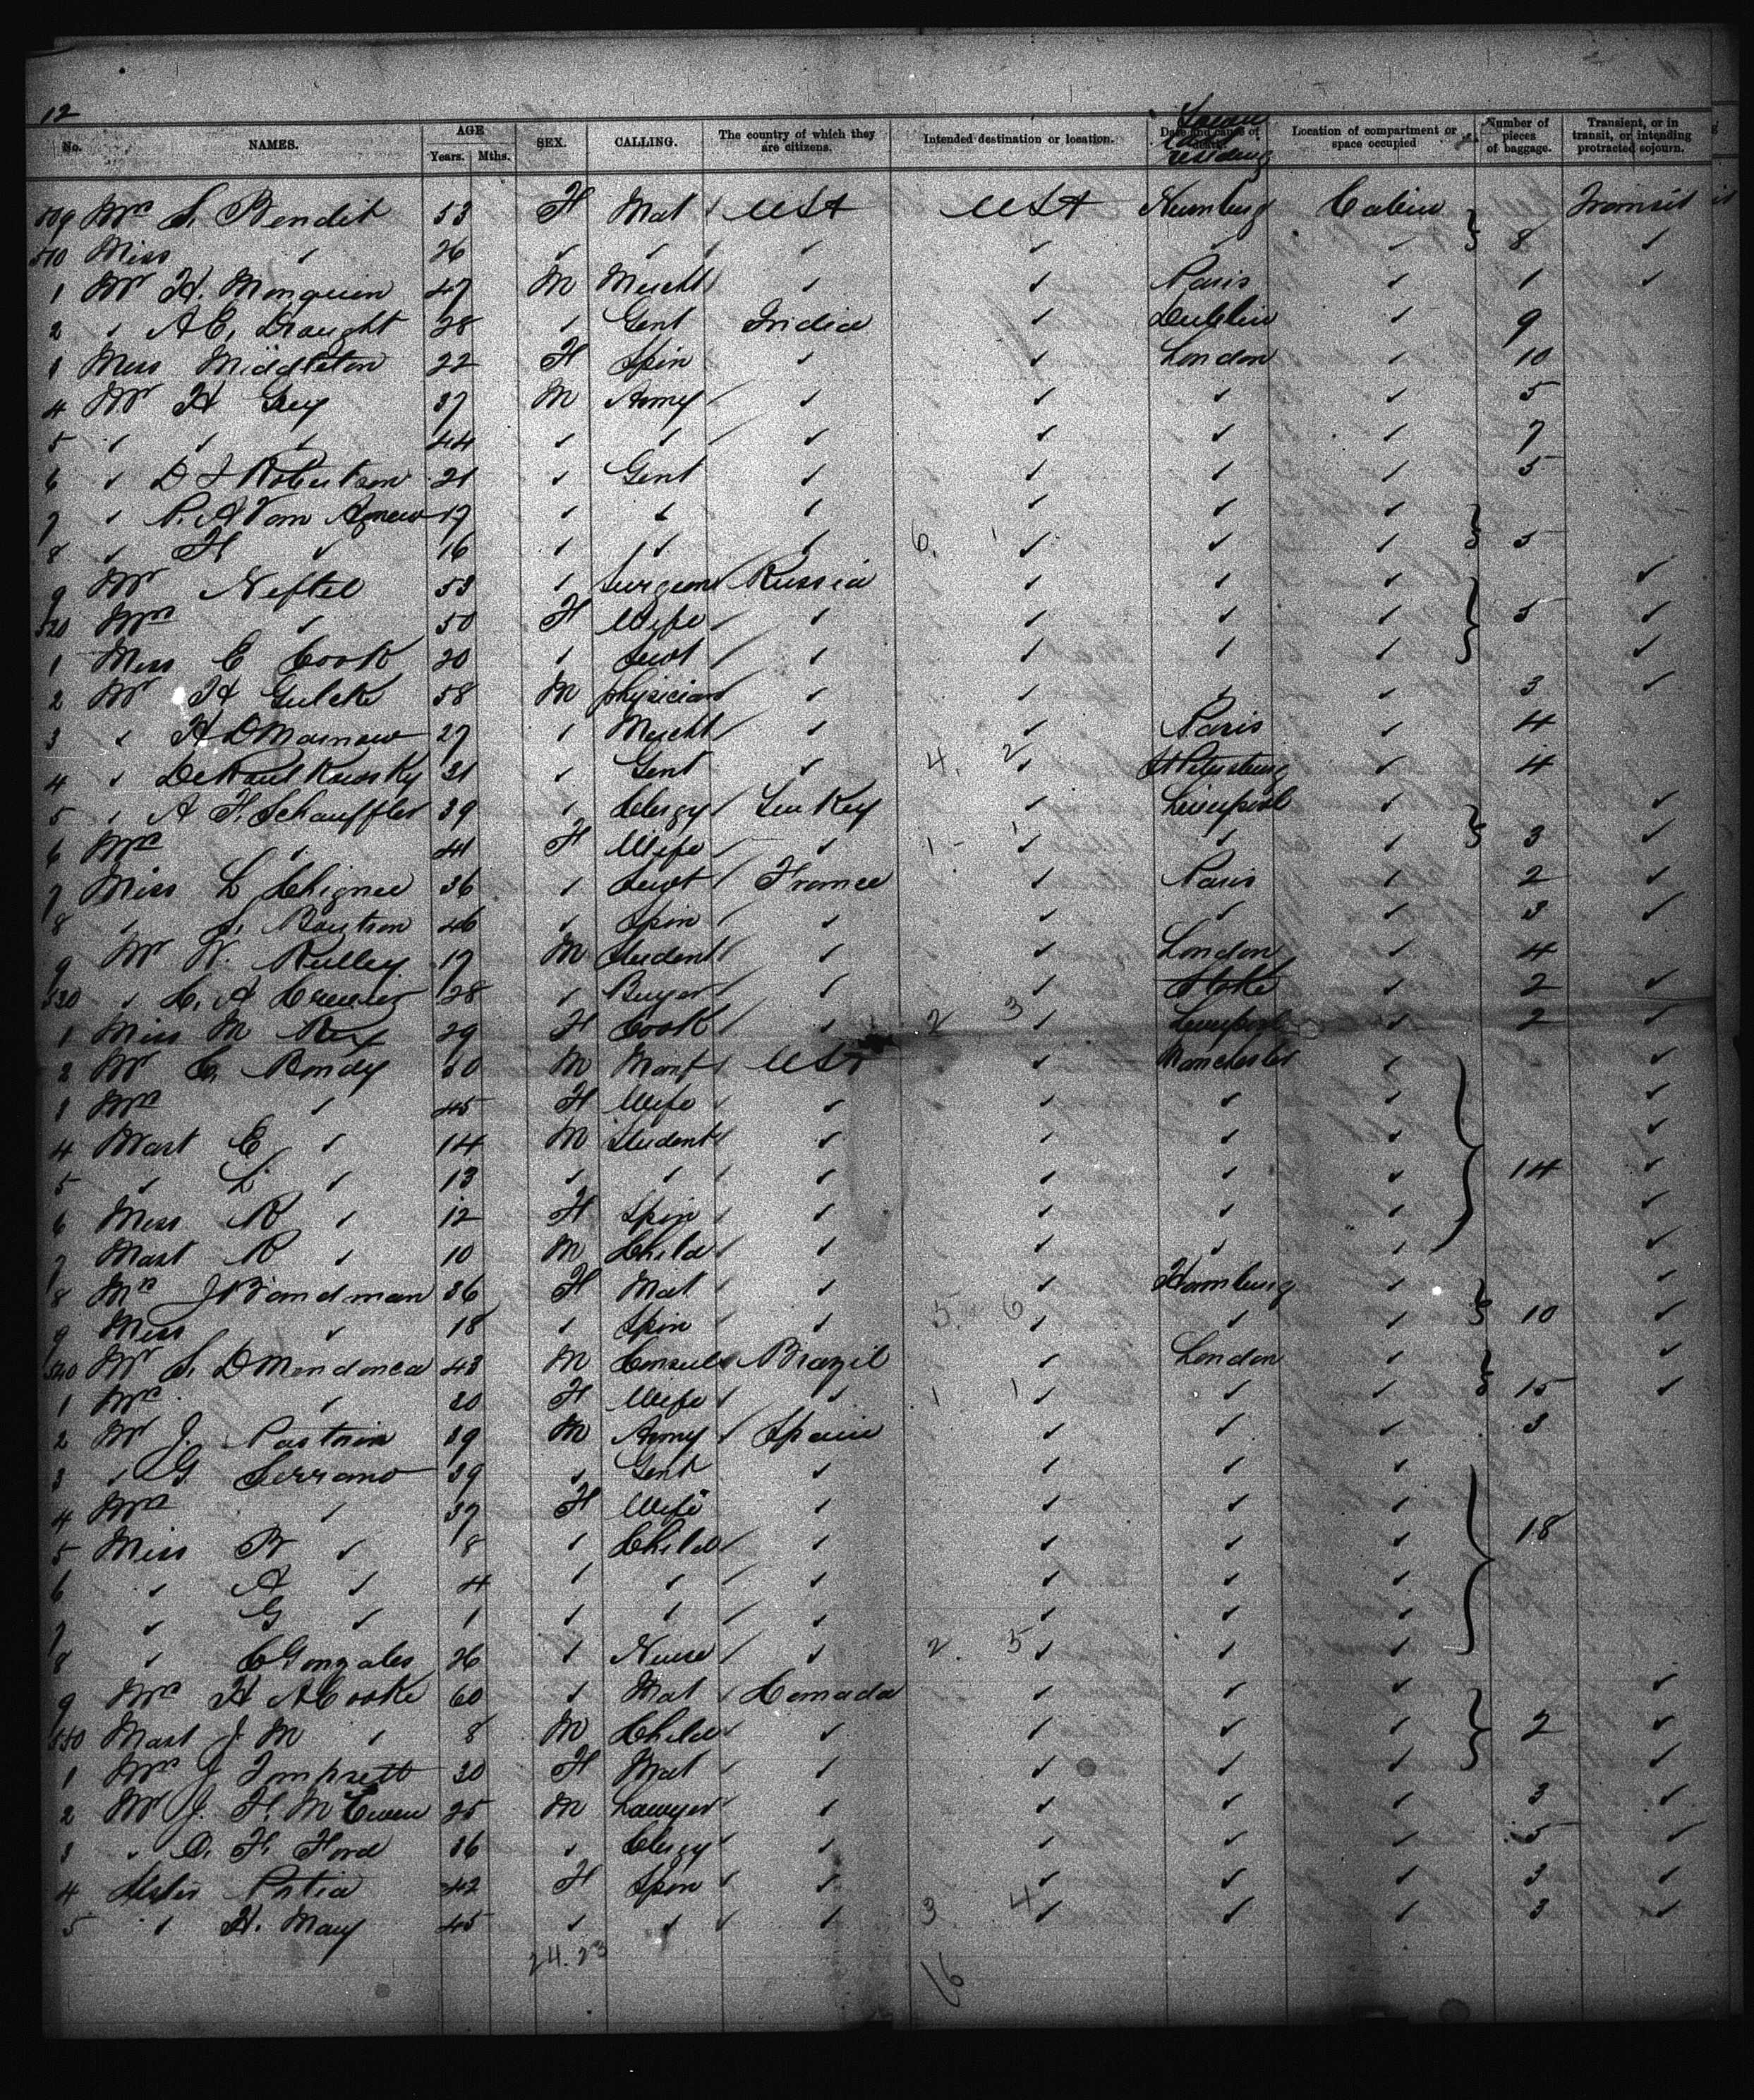 12
No. NAMES. AGE Years. Mths. SEX. CALLING. The country of which they are citizens. Intended destination or location. Date and cause of death. residing Location of compartment or space occupied Number of pieces of baggage. Transient, or in transit, or intending protracted sojourn.
509 Mrs S. Bendit 53 F Mat USA USA Nurnburg Cabin Transit
510 Miss ✓ 26 ✓ ✓ ✓ ✓ ✓ ✓ 8 ✓
1 Mr H. Monquin 47 M Mercht ✓ ✓ Paris ✓ 1 ✓
2 ✓ A.E. Draught 28 ✓ Gent India ✓ Dublin ✓ 9
3 Miss Middleton 22 F Spin ✓ ✓ London ✓ 10
4 Mr H Guy 37 M Army ✓ ✓ ✓ ✓ 5
5 ✓ ✓ ✓ 44 ✓ ✓ ✓ ✓ ✓ ✓ 7
6 ✓ D J Robertson 21 ✓ Gent ✓ ✓ ✓ ✓ 5
7 ✓ P. A Van Agnew 17 ✓ ✓ ✓ ✓ ✓ ✓
8 ✓ H ✓ 16 ✓ ✓ ✓ 6. 1 ✓ ✓ ✓ 5
9 Mr Neftel 53 ✓ Surgeon Russia ✓ ✓ ✓ ✓
520 Mrs ✓ 50 F Wife ✓ ✓ ✓ ✓ 5 ✓
1 Miss E Cook 20 ✓ Sevt ✓ ✓ ✓ ✓ ✓
2 Mr H Gulck 58 M physician ✓ ✓ ✓ ✓ 3 ✓
3 ✓ H D Marnow 27 ✓ Mercht ✓ ✓ Paris ✓ 4
4 ✓ 31 ✓ Gent ✓ 4. 2 ✓ St Petersburg ✓ 4
5 ✓ A F. Schauffler 39 ✓ Clergy Turkey ✓ Liverpool ✓ ✓
6 Mrs ✓ 41 F Wife ✓ 1 1 ✓ ✓ ✓ 3 ✓
7 Miss L Chignee 36 ✓ Sevt France ✓ Paris ✓ 2 ✓
8 ✓ S. Boutron 46 ✓ Spin ✓ ✓ ✓ ✓ 3 ✓
9 Mr W. Kelley 17 M Student ✓ ✓ London ✓ 4
530 ✓ C. A 28 ✓ Buyer ✓ ✓ Stoke ✓ 2 ✓
1 Miss M Rey 29 F Cook ✓ 2 3 ✓ Liverpool ✓ 2 ✓
2 Mr C. Bondy 50 M Manf USA ✓ Manchester ✓ ✓
3 Mrs ✓ 45 F Wife ✓ ✓ ✓ ✓ ✓
4 Mast E ✓ 14 M Student ✓ ✓ ✓ ✓ ✓
5 ✓ L ✓ 13 ✓ ✓ ✓ ✓ ✓ ✓ 14 ✓
6 Miss R ✓ 12 F Spin ✓ ✓ ✓ ✓ ✓
7 Mast R ✓ 10 M Child ✓ ✓ ✓ ✓ ✓
8 Mrs J Bandman 36 F Mat ✓ ✓ Hamburg ✓ ✓
9 Miss ✓ 18 ✓ Spin ✓ 5. 6 ✓ ✓ ✓ 10 ✓
540 Mr S. D Mendonca 43 M Consul Brazil ✓ London ✓ ✓
1 Mrs ✓ 30 F Wife ✓ 1 1 ✓ ✓ ✓ 15 ✓
2 Mr J. Pastrin 39 M Army Spain ✓ ✓ ✓ 3
3 ✓ G. Serrano 39 ✓ Gent ✓ ✓ ✓ ✓
4 Mrs ✓ 37 F Wife ✓ ✓ ✓ ✓
5 Miss B ✓ 8 ✓ Child ✓ ✓ ✓ ✓ 18
6 ✓ A ✓ 4 ✓ ✓ ✓ ✓ ✓ ✓
7 ✓ G ✓ 1 ✓ ✓ ✓ ✓ ✓ ✓
8 ✓ C Gonzales 26 ✓ Nurse ✓ 2. 5 ✓ ✓ ✓
9 Mrs H A Cooke 60 ✓ Mat Canada ✓ ✓ ✓ ✓
550 Mast J. M ✓ 8 M Child ✓ ✓ ✓ ✓ 2 ✓
1 Mrs J Tompsett 30 F Mat ✓ ✓ ✓ ✓ ✓
2 Mr J. F. McEwen 25 M Lawyer ✓ ✓ ✓ ✓ 3 ✓
3 ✓ O. F. Ford 36 ✓ Clergy ✓ ✓ ✓ ✓ 5 ✓
4 Sister Patia 42 F Spin ✓ ✓ ✓ ✓ 3 ✓
5 ✓ H. May 45 ✓ ✓ ✓ 3 4 ✓ ✓ ✓ 3 ✓
24. 23
16